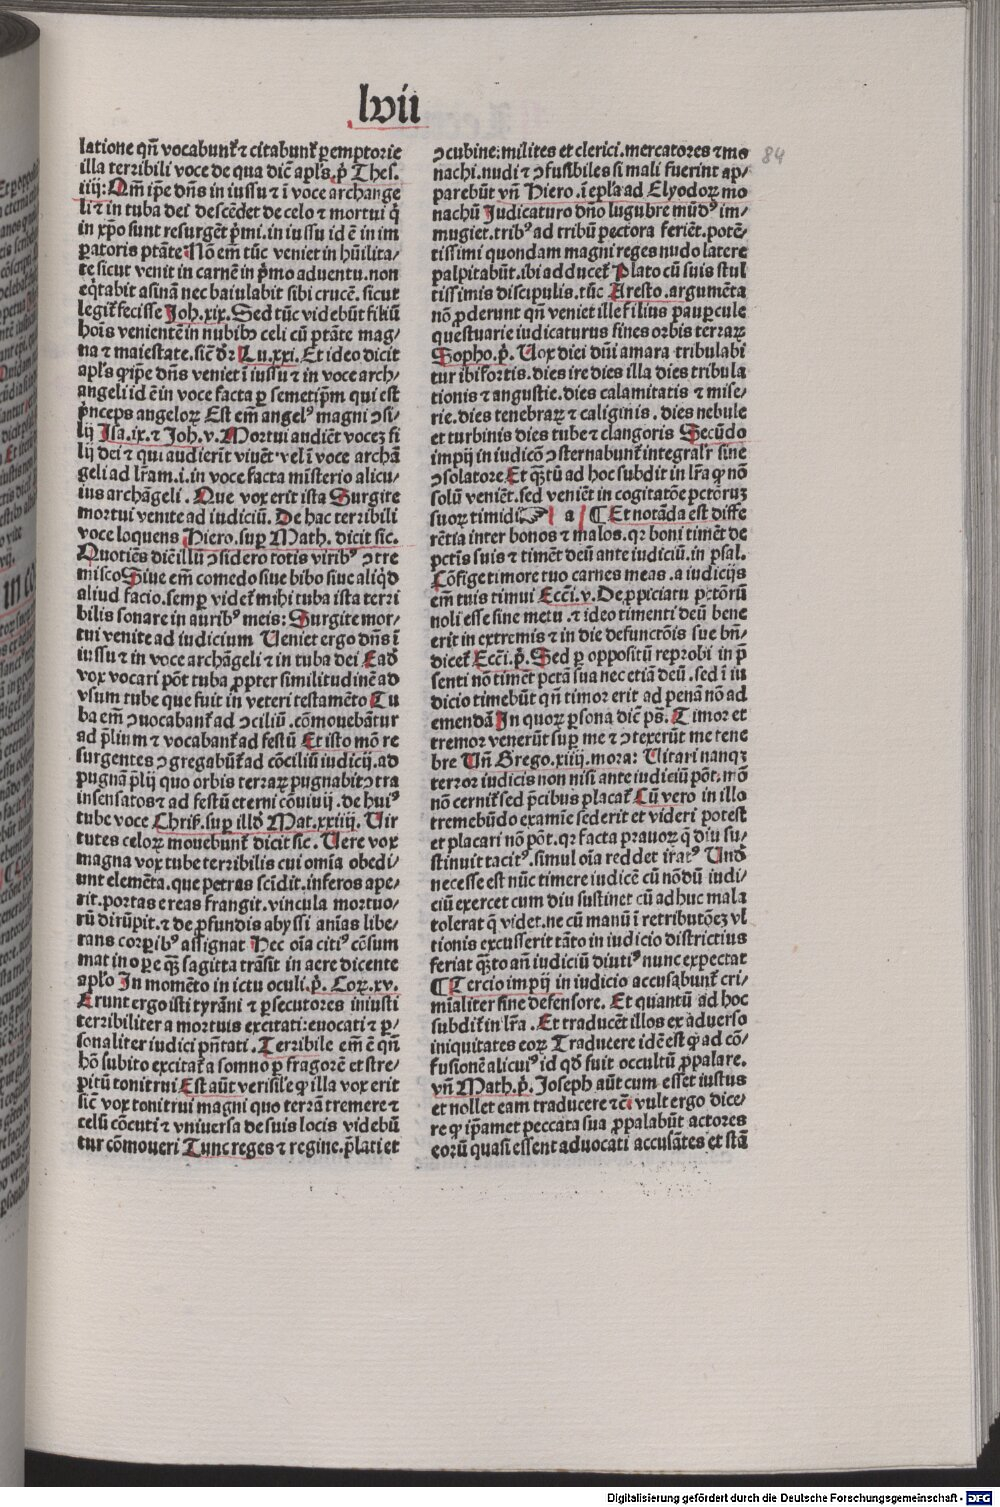 lvii
latione qn̄ vocabunt̄ ⁊ citabunt̄ ꝑemptorie
illa terribili voce de qua dic̄ apl̄s. p̄ Thes.
iiij: Qm̄ ip̄e dn̄s in iussu ⁊ ī voce archange
li ⁊ in tuba dei descēdet de celo ⁊ mortui q̇
in xp̄o sunt resurgēt p̄mi. in iussu id ē in im
ꝑatoris ptāte Nō em̄ tūc veniet in hūilita⸗
te sicut venit in carnē in p̄mo aduentu. non
eq̇tabit asinā nec baiulabit sibi crucē. sicut
legit̄ fecisse Joh. xix. Sed tūc videbūt filiū
hoīs venientē in nubibꝰ celi cū ptāte mag⸗
na ⁊ maiestate. sic̄ dr̄ Lu. xxi. Et ideo dicit
apl̄s ꝙ ip̄e dn̄s veniet ī iussu ⁊ in voce arch⸗
angeli id ē in voce facta ꝑ semetip̄m qui est
p̄nceps angeloꝝ Est em̄ angelꝰ magni ↄsi⸗
lij Isa. ix. ⁊ Joh. v. Mortui audiēt vocez fi
lij dei ⁊ qui audierīt viuēt. vel ī voce archā
geli ad lr̄am. i. in voce facta mīsterio alicu⸗
ius archāgeli. Que vox erit ista Surgite
mortui venite ad iudiciū. De hac terribili
voce loquens Hiero. suꝑ Math. dicit sic.
Quotiēs diē illū ↄsidero totis viribꝰ ↄtre
misco Siue em̄ comedo siue bibo siue aliq̇d
aliud facio. semꝑ videt̄ mihi tuba ista terri
bilis sonare in auribꝰ meis: Surgite mor⸗
tui venite ad iudicium Ueniet ergo dn̄s ī
iussu ⁊ in voce archāgeli ⁊ in tuba dei Ead̄
vox vocari pōt tuba ꝓpter similitudinē ad
vsum tube que fuit in veteri testamēto Tu
ba em̄ ↄuocabant̄ ad ↄciliū. cōmouebātur
ad p̄lium ⁊ vocabant̄ ad festū Et isto mō re
surgentes ↄgregabūt̄ ad cōciliū iudicij. ad
pugnā p̄lij quo orbis terraꝝ pugnabit ↄtra
insensatos ⁊ ad festū eterni cōuiuij. de huiꝰ
tube voce Chris̄. suꝑ illd̄ Mat. xxiiij. Uir
tutes celoꝝ mouebunt̄ dicit sic. Uere vox
magna vox tube terribilis cui om̄ia obedi⸗
unt elemēta. que petras scīdit. inferos ape⸗
rit. portas ereas frangit. vincula mortuo⸗
rū dirūpit. ⁊ de ꝓfundis abyssi anīas libe⸗
rans corꝑibꝰ assignat Hec oīa citiꝰ cōsum
mat in oꝑe q̄ꝫ sagitta trāsit in aere dicente
apl̄o In momēto in ictu oculi. p̄. Coꝝ. xv.
Erunt ergo isti tyrāni ⁊ ꝑsecutores iniusti
terribiliter a mortuis excitati: euocati ⁊ ꝑ⸗
sonaliter iudici pn̄tati. Terribile em̄ ē qn̄
hō subito excitat̄ a somno ꝑ fragorē et stre⸗
pitū tonitrui Est aūt verisil̄e ꝙ illa vox erit
sic̄ vox tonitrui magni quo terrā tremere ⁊
celū cōcuti ⁊ vniuersa de suis locis videbū
tur cōmoueri Tunc reges ⁊ regine. p̄lati et
ↄcubine: milites et clerici. mercatores ⁊ mo
nachi. nudi ⁊ ↄfusibiles si mali fuerint ap⸗
parebūt vn̄ Hiero. ī epl̄a ad Elyodoꝝ mo
nachū Judicaturo dn̄o lugubre mūdꝰ im⸗
mugiet. tribꝰ ad tribū pectora feriēt. potē⸗
tissimi quondam magni reges nudo latere
palpitabūt. ibi adducet̄ Plato cū suis stul
tissimis discipulis. tūc Aresto. argumēta
nō ꝓderunt qn̄ veniet ille filius pauꝑcule
questuarie iudicaturus fines orbis terraꝝ
Sopho. p̄. Uox diei dn̄i amara tribulabi
tur ibi fortis. dies ire dies illa dies tribula
tionis ⁊ angustie. dies calamitatis ⁊ mise⸗
rie. dies tenebraꝝ ⁊ caliginis. dies nebule
et turbinis dies tube ⁊ clangoris Secūdo
impij in iudicō ↄsternabunt̄ integralr̄ sine
ↄsolatore Et q̄ꝫtū ad hoc subdit in lr̄a ꝙ nō
solū veniēt. sed veniēt in cogitatōe pctōruꝫ
suoꝝ timidi a ¶ Et notāda est diffe
rētia inter bonos ⁊ malos. qꝛ boni timēt de
pctīs suis ⁊ timēt deū ante iudiciū. in psal.
Cōfige timore tuo carnes meas. a iudicijs
em̄ tuis timui Ecc̄i. v. De ꝓpiciatu pctōrū
noli esse sine metu. ⁊ ideo timenti deū bene
erit in extremis ⁊ in die defunctōis sue bn̄⸗
dicet̄ Ecc̄i. p̄. Sed ꝑ oppositū reprobi in p̄
senti nō timēt pctā sua nec etiā deū. sed ī iu
dicio timebūt qn̄ timor erit ad penā nō ad
emendā In quoꝝ ꝑsona dic̄ ps̄. Timor et
tremor venerūt suꝑ me ⁊ ↄtexerūt me tene
bre Un̄ Grego. xiiij. mora: Uitari nanqꝫ
terror iudicis non nisi ante iudiciū pōt. mō
nō cernit̄ sed p̄cibus placat̄ Cū vero in illo
tremebūdo examīe sederit et videri potest
et placari nō pōt. qꝛ facta prauoꝝ q̄ diu su⸗
stinuit tacitꝰ. simul oīa reddet iratꝰ Und̄
necesse est nūc timere iudicē cū nōdū iudi⸗
ciū exercet cum diu sustinet cū adhuc mala
tolerat q̄ videt. ne cū manū ī retributōeꝫ vl
tionis excusserit tāto in iudicio districtius
feriat q̄ꝫto an̄ iudiciū diutiꝰ nunc expectat
¶ Tercio impij in iudicio accusabunt̄ cri⸗
mīaliter sine defensore. Et quantū ad hoc
subdit̄ in lr̄a. Et traducēt illos ex aduerso
iniquitates eoꝝ Traducere idē est ꝙ ad cō⸗
fusionē alicuiꝰ id qd̄ fuit occultū ꝓpalare.
vn̄ Math. p̄. Joseph aūt cum esset iustus
et nollet eam traducere ⁊c̄ vult ergo dice⸗
re ꝙ ip̄amet peccata sua ꝓpalabūt actores
eorū quasi essent aduocati accusātes et stā
84
Digitalisierung gefördert durch die Deutsche Forschungsgemeinschaft - DFG